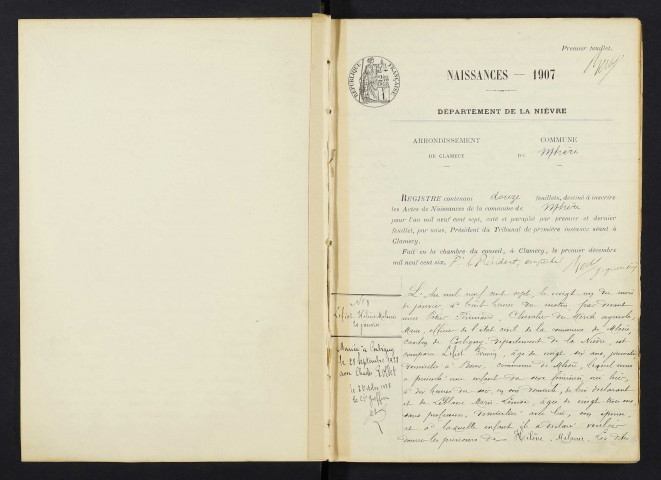 Premier feuillet.
RÉPUBLIQUE FRANÇAISE
NAISSANCES — 1907
DÉPARTEMENT DE LA NIÈVRE
ARRONDISSEMENT
DE CLAMECY
COMMUNE
DE Mhère
REGISTRE contenant douze feuillets, destiné à inscrire
les Actes de Naissances de la commune de Mhère
pour l'an mil neuf cent sept, coté et paraphé par premier et dernier
feuillet, par nous, Président du Tribunal de première instance séant à
Clamecy.
Fait en la chambre du conseil, à Clamecy, le premier décembre
mil neuf cent six,
N° 1
Hélène Mélanie
20 janvier
Mariée à Corbigny
le 29 Septembre 1928
avec Charles
L'an mil neuf cent sept, le vingt un du mois
de janvier à huit heures du matin, par devant
nous Chevalier du Mérite agricole
Maire, officier de l'état civil de la commune de Mhère,
canton de Corbigny, département de la Nièvre, est
comparu âgé de vingt six ans,
domicilié à commune de Mhère, lequel nous
a présenté une enfant du sexe féminin, née hier,
à dix heures du soir, en son domicile, de lui déclarant
et de Leblanc Marie Louise, âgée de vingt trois ans
sans profession, domiciliée avec lui, son épouse
et à laquelle enfant il a déclaré vouloir
donner les prénoms de Hélène, Mélanie. Les dites